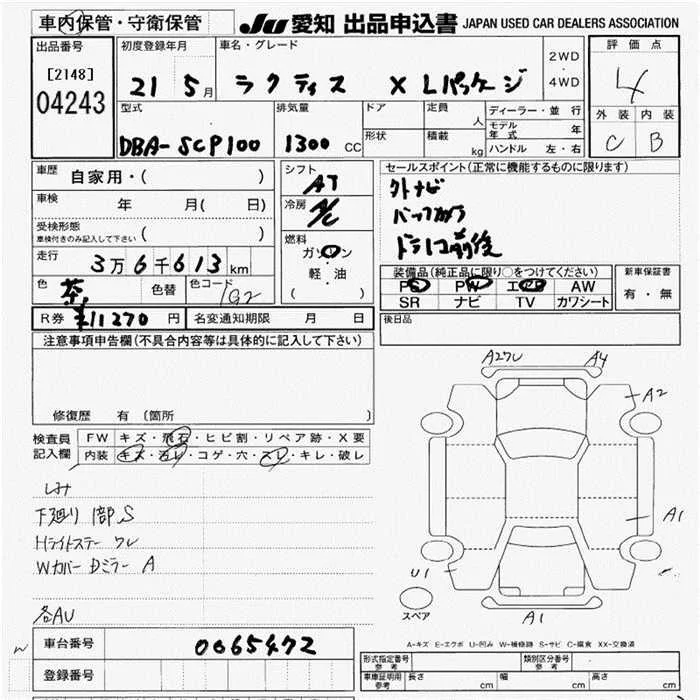 車内保管・守衛保管
JU 愛知 出品申込書 JAPAN USED CAR DEALERS ASSOCIATION
出品番号
[2148]
04243
初度登録年月
21 5月
車名・グレード
ラクティス X Lパッケージ
2WD
4WD
評価点
4
外装 内装
C B
型式
DBA-SCP100
排気量
1300 CC
ドア
形状
定員 人
積載 kg
ディーラー・並行
モデル年式 年
ハンドル 左・右
車歴
自家用・( )
車検
年 月( 日)
受検形態
車検付きのみ記入して下さい ( )
走行
3万6千613km
色
茶
色替
色コード
1G2
R券 ¥11270円
名変通知期限 月 日
シフト
AT
冷房
A/C
燃料
ガソリン
軽・油
( )
セールスポイント(正常に機能するものに限ります)
外ナビ
バックカメラ
ドラレコ前後
装備品(純正品に限り○をつけてください)
PS PW エアB AW
SR ナビ TV カワシート
新車保証書
有・無
後日品
注意事項申告欄(不具合内容等は具体的に記入して下さい)
修復歴 有 〔箇所 〕
検査員記入欄
FW キズ・飛石・ヒビ割・リペア跡・X要
内装 キズ・汚レ・コゲ・穴・スレ・キレ・破レ
シミ
下廻り1部S
Hライトステー ワレ
Wカバー Dミラー A
各AU
A27U
A4
A2
A1
U1
A1
スペア
A-キズ E-エクボ U-凹み W-補修跡 S-サビ C-腐食 XX-交換済
車台番号
0065472
登録番号
形式指定番号
参考
類別区分番号
参考
車庫証明用
参考
長さ cm
幅 cm
高さ cm